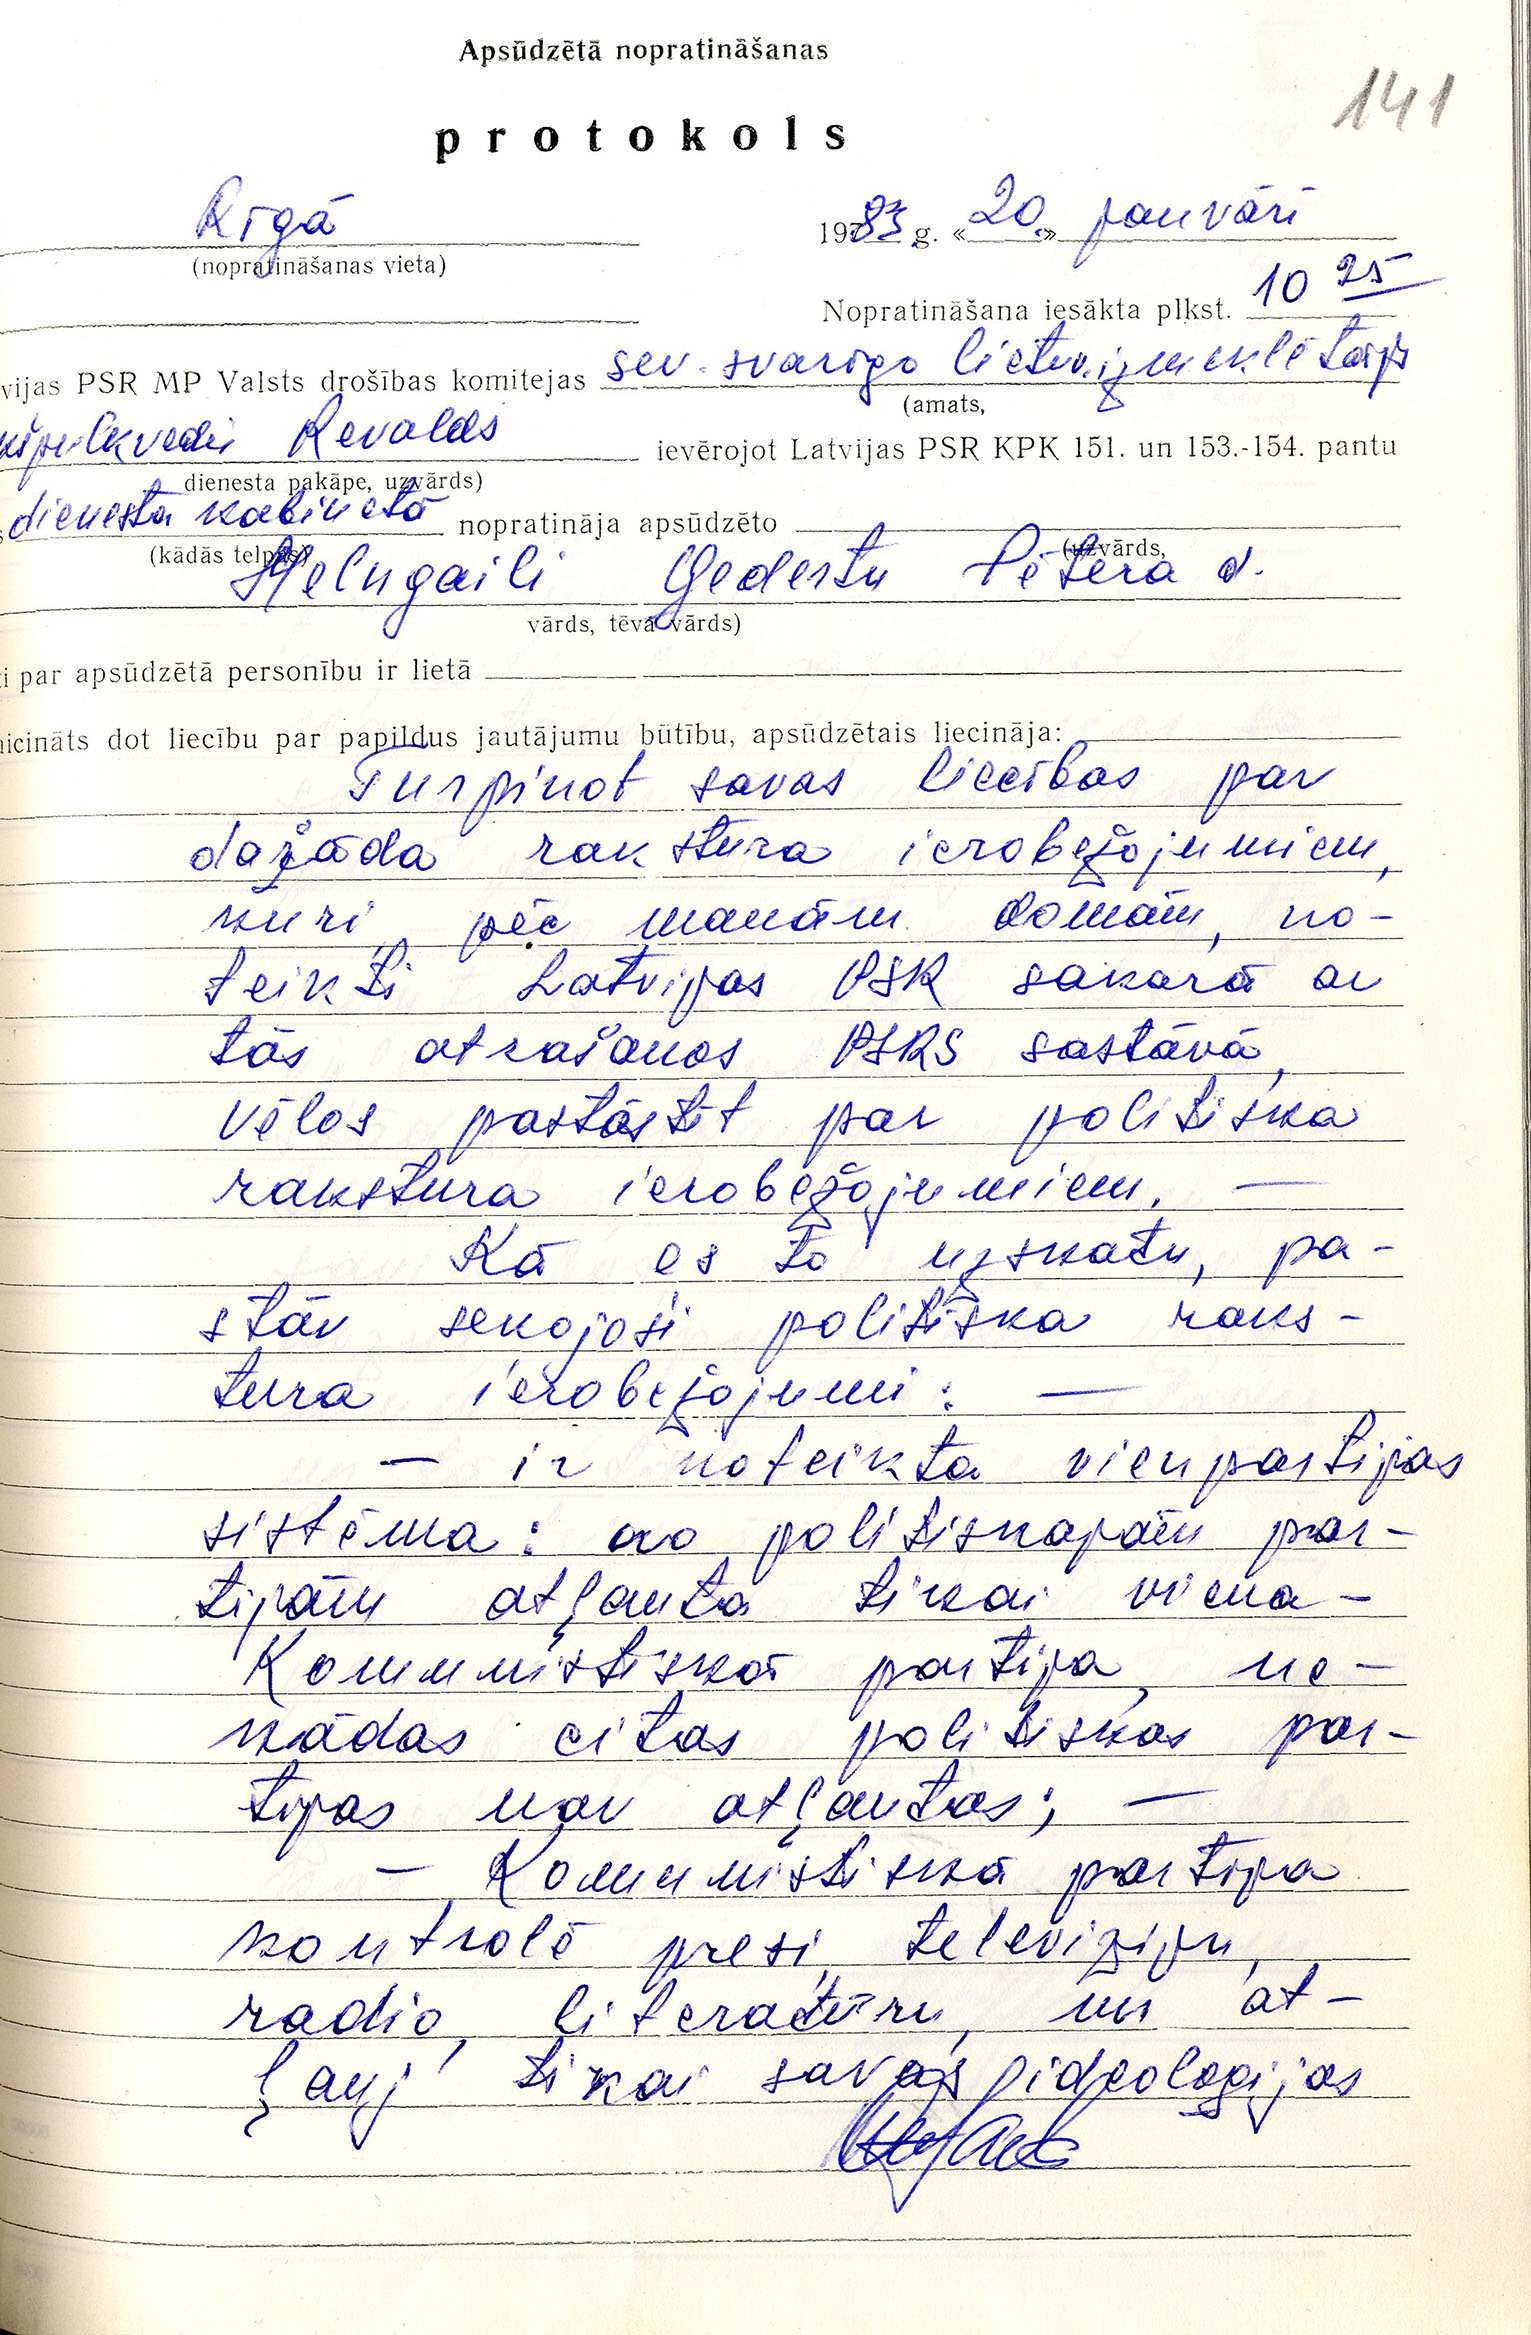 Apsūdzētā nopratināšanas
141
protokols
Rīgā
1983 g. «20.» janvārī
(nopratināšanas vieta)
Nopratināšana iesākta plkst. 10 25
vijas PSR MP Valsts drošības komitejas sev. svarīgo lietu izmeklētājs
(amats,
Revalds ievērojot Latvijas PSR KPK 151. un 153.-154. pantu
dienesta pakāpe, uzvārds)
dienesta kabinetā nopratināja apsūdzēto
(kādās telpās) (uzvārds,
Melngaili Gedertu Pētera d.
vārds, tēva vārds)
i par apsūdzētā personību ir lietā
icināts dot liecību par papildus jautājumu būtību, apsūdzētais liecināja:
Turpinot savas liecības par
dažāda rakstura ierobežojumiem,
kuri, pēc manām domām, no-
teikti Latvijas PSR sakarā ar
tās atrašanos PSRS sastāvā,
vēlos pastāstīt par politiska
rakstura ierobežojumiem. —
Kā es to uzskatu, pa-
stāv sekojoši politiska raks-
tura ierobežojumi: —
— ir noteikta vienpartijas
sistēma: no politiskajām par-
tijām atļauta tikai viena -
Komunistiskā partija, ne-
kādas citas politiskas par-
tijas nav atļautas; —
— Komunistiskā partija
kontrolē presi, televīziju,
radio, literatūru, un at-
ļauj tikai savas ideoloģijas